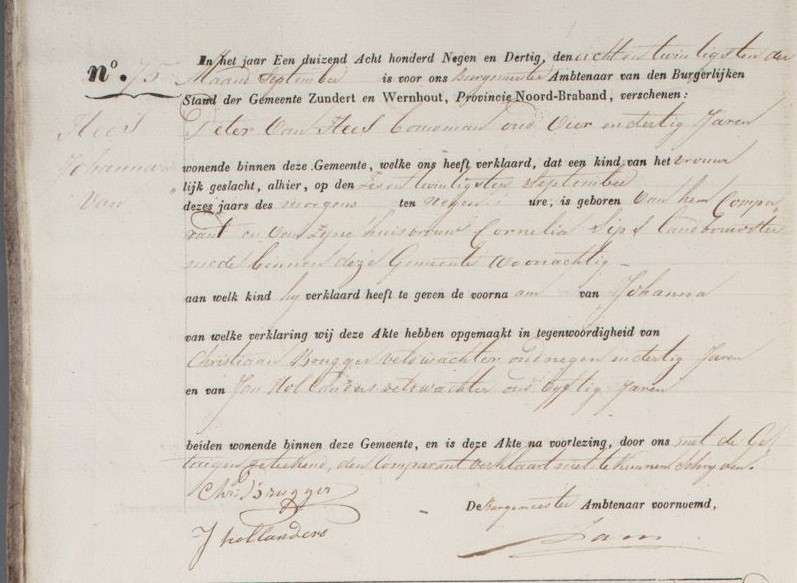 nº. 75
Hees
Johanna van
In het jaar Een duizend Acht honderd Negen en Dertig, den acht en twintigsten der
Maand September is voor ons Burgemeester Ambtenaar van den Burgerlijken
Stand der Gemeente Zundert en Wernhout, Provincie Noord-Braband, verschenen:
Peter Van Hees bouwman oud vier en dertig Jaren
wonende binnen deze Gemeente, welke ons heeft verklaard, dat een kind van het vrouwe
lijk geslacht, alhier, op den zes en twintigsten September
dezes jaars des morgens ten negen ure, is geboren Van hem Compa
rant en Van zyne huisvrouw Cornelia Sips landbouwster
mede binnen deze Gemeente woonachtig
aan welk kind hy verklaard heeft te geven de voorna am van Johanna
van welke verklaring wij deze Akte hebben opgemaakt in tegenwoordigheid van
Christiaan Brugger veldwachter oud negen en dertig Jaren
en van Jan Hollanders veldwachter oud vyftig Jaren
beiden wonende binnen deze Gemeente, en is deze Akte na voorlezing, door ons met de Ge
tuigen geteekend, den Comparant verklaart niet te kunnen schryven.
Chr: Brugger
De Burgemeester Ambtenaar voornoemd,
J hollanders